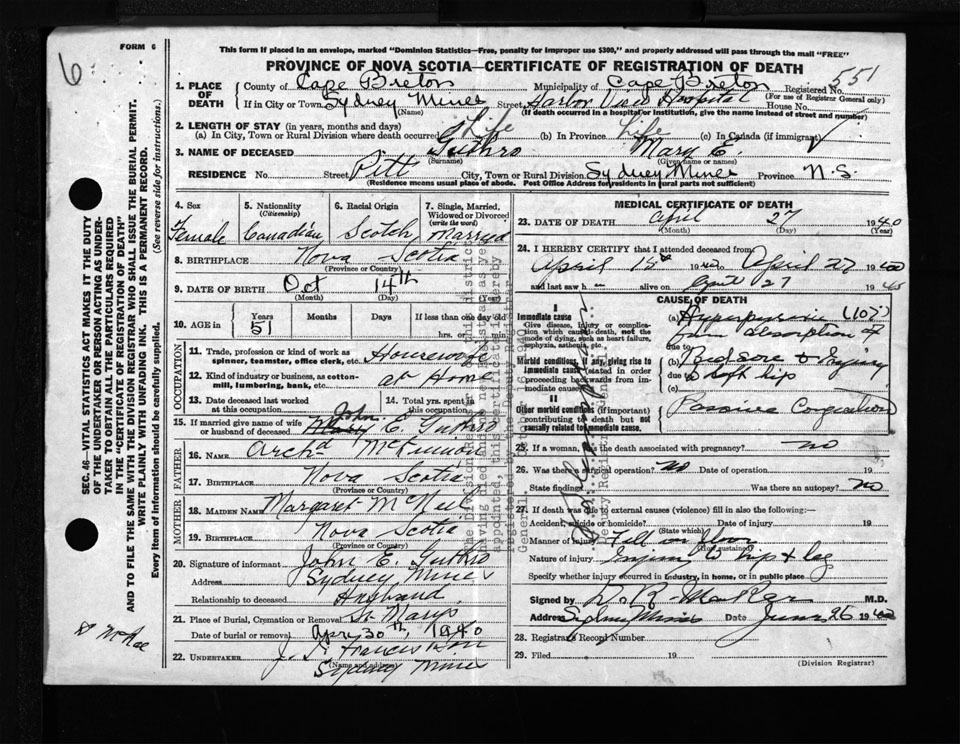 6
FORM 6
This form if placed in an envelope, marked "Dominion Statistics—Free, penalty for improper use $300," and properly addressed will pass through the mail "FREE"
PROVINCE OF NOVA SCOTIA—CERTIFICATE OF REGISTRATION OF DEATH
551
SEC. 46—VITAL STATISTICS ACT MAKES IT THE DUTY
OF THE UNDERTAKER OR PERSON ACTING AS UNDER-
TAKER TO OBTAIN ALL THE PARTICULARS REQUIRED
IN THE "CERTIFICATE OF REGISTRATION OF DEATH"
AND TO FILE THE SAME WITH THE DIVISION REGISTRAR WHO SHALL ISSUE THE BURIAL PERMIT.
WRITE PLAINLY WITH UNFADING INK. THIS IS A PERMANENT RECORD.
Every item of information should be carefully supplied. (See reverse side for instructions.)
1. PLACE OF DEATH
County of Cape Breton Municipality of Cape Breton Registered No.
(For use of Registrar General only)
If in City or Town Sydney Mines Street Harbor View Hospital House No.
(Name) (If death occurred in a hospital or institution, give the name instead of street and number)
2. LENGTH OF STAY (in years, months and days)
(a) In City, Town or Rural Division where death occurred Life (b) In Province Life (c) In Canada (if immigrant)
3. NAME OF DECEASED Guthro Mary E.
(Surname) (Given name or names)
RESIDENCE No. Street Pitt City, Town or Rural Division Sydney Mines Province N.S.
(Residence means usual place of abode. Post Office Address for residents in rural parts not sufficient)
4. Sex 5. Nationality (Citizenship) 6. Racial Origin 7. Single, Married, Widowed or Divorced (write the word)
Female Canadian Scotch Married
8. BIRTHPLACE Nova Scotia
(Province or Country)
9. DATE OF BIRTH Oct 14th
(Month) (Day) (Year)
10. AGE in Years Months Days If less than one day old
51 hrs. or min.
OCCUPATION
11. Trade, profession or kind of work as spinner, teamster, office clerk, etc. Housewife
12. Kind of industry or business, as cotton-mill, lumbering, bank, etc. at Home
13. Date deceased last worked at this occupation 14. Total yrs. spent in this occupation
15. If married give name of wife or husband of deceased John E. Guthro
FATHER
16. Name Archd McKinnon
17. Birthplace Nova Scotia
(Province or Country)
MOTHER
18. MAIDEN NAME Margaret McNeil
19. Birthplace Nova Scotia
(Province or Country)
20. Signature of informant John E. Guthro
Address Sydney Mines
Relationship to deceased Husband
21. Place of Burial, Cremation or Removal St. Marys
Date of burial or removal Apr 30th, 1940
22. UNDERTAKER J. Francis
(Name and address) Sydney Mines
MEDICAL CERTIFICATE OF DEATH
23. DATE OF DEATH April 27 1940
(Month) (Day) (Year)
24. I HEREBY CERTIFY that I attended deceased from
April 1940 to April 27 1940
and last saw h alive on April 27 1940
CAUSE OF DEATH
I
Immediate cause
Give disease, injury or complication which caused death, not the mode of dying, such as heart failure, asphyxia, asthenia, etc.
(a) Hyperpyrexia (107)
from absorption of
due to
Morbid conditions, if any, giving rise to immediate cause (stated in order proceeding backwards from immediate cause)
(b) Bedsore & Injury
due to
(c)
II
Other morbid conditions (if important) contributing to death but not causally related to immediate cause.
Passive Congestion
25. If a woman, was the death associated with pregnancy? no
26. Was there a surgical operation? no Date of operation 19
State findings Was there an autopsy? no
27. If death was due to external causes (violence) fill in also the following:—
Accident, suicide or homicide? Date of injury 19
(State which)
Manner of injury Fell on floor
(How sustained)
Nature of injury Injury to hip & leg
Specify whether injury occurred in industry, in home, or in public place
Signed by M.D.
Address Sydney Mines Date June 26 1940
28. Record Number
29. Filed 19
(Division Registrar)